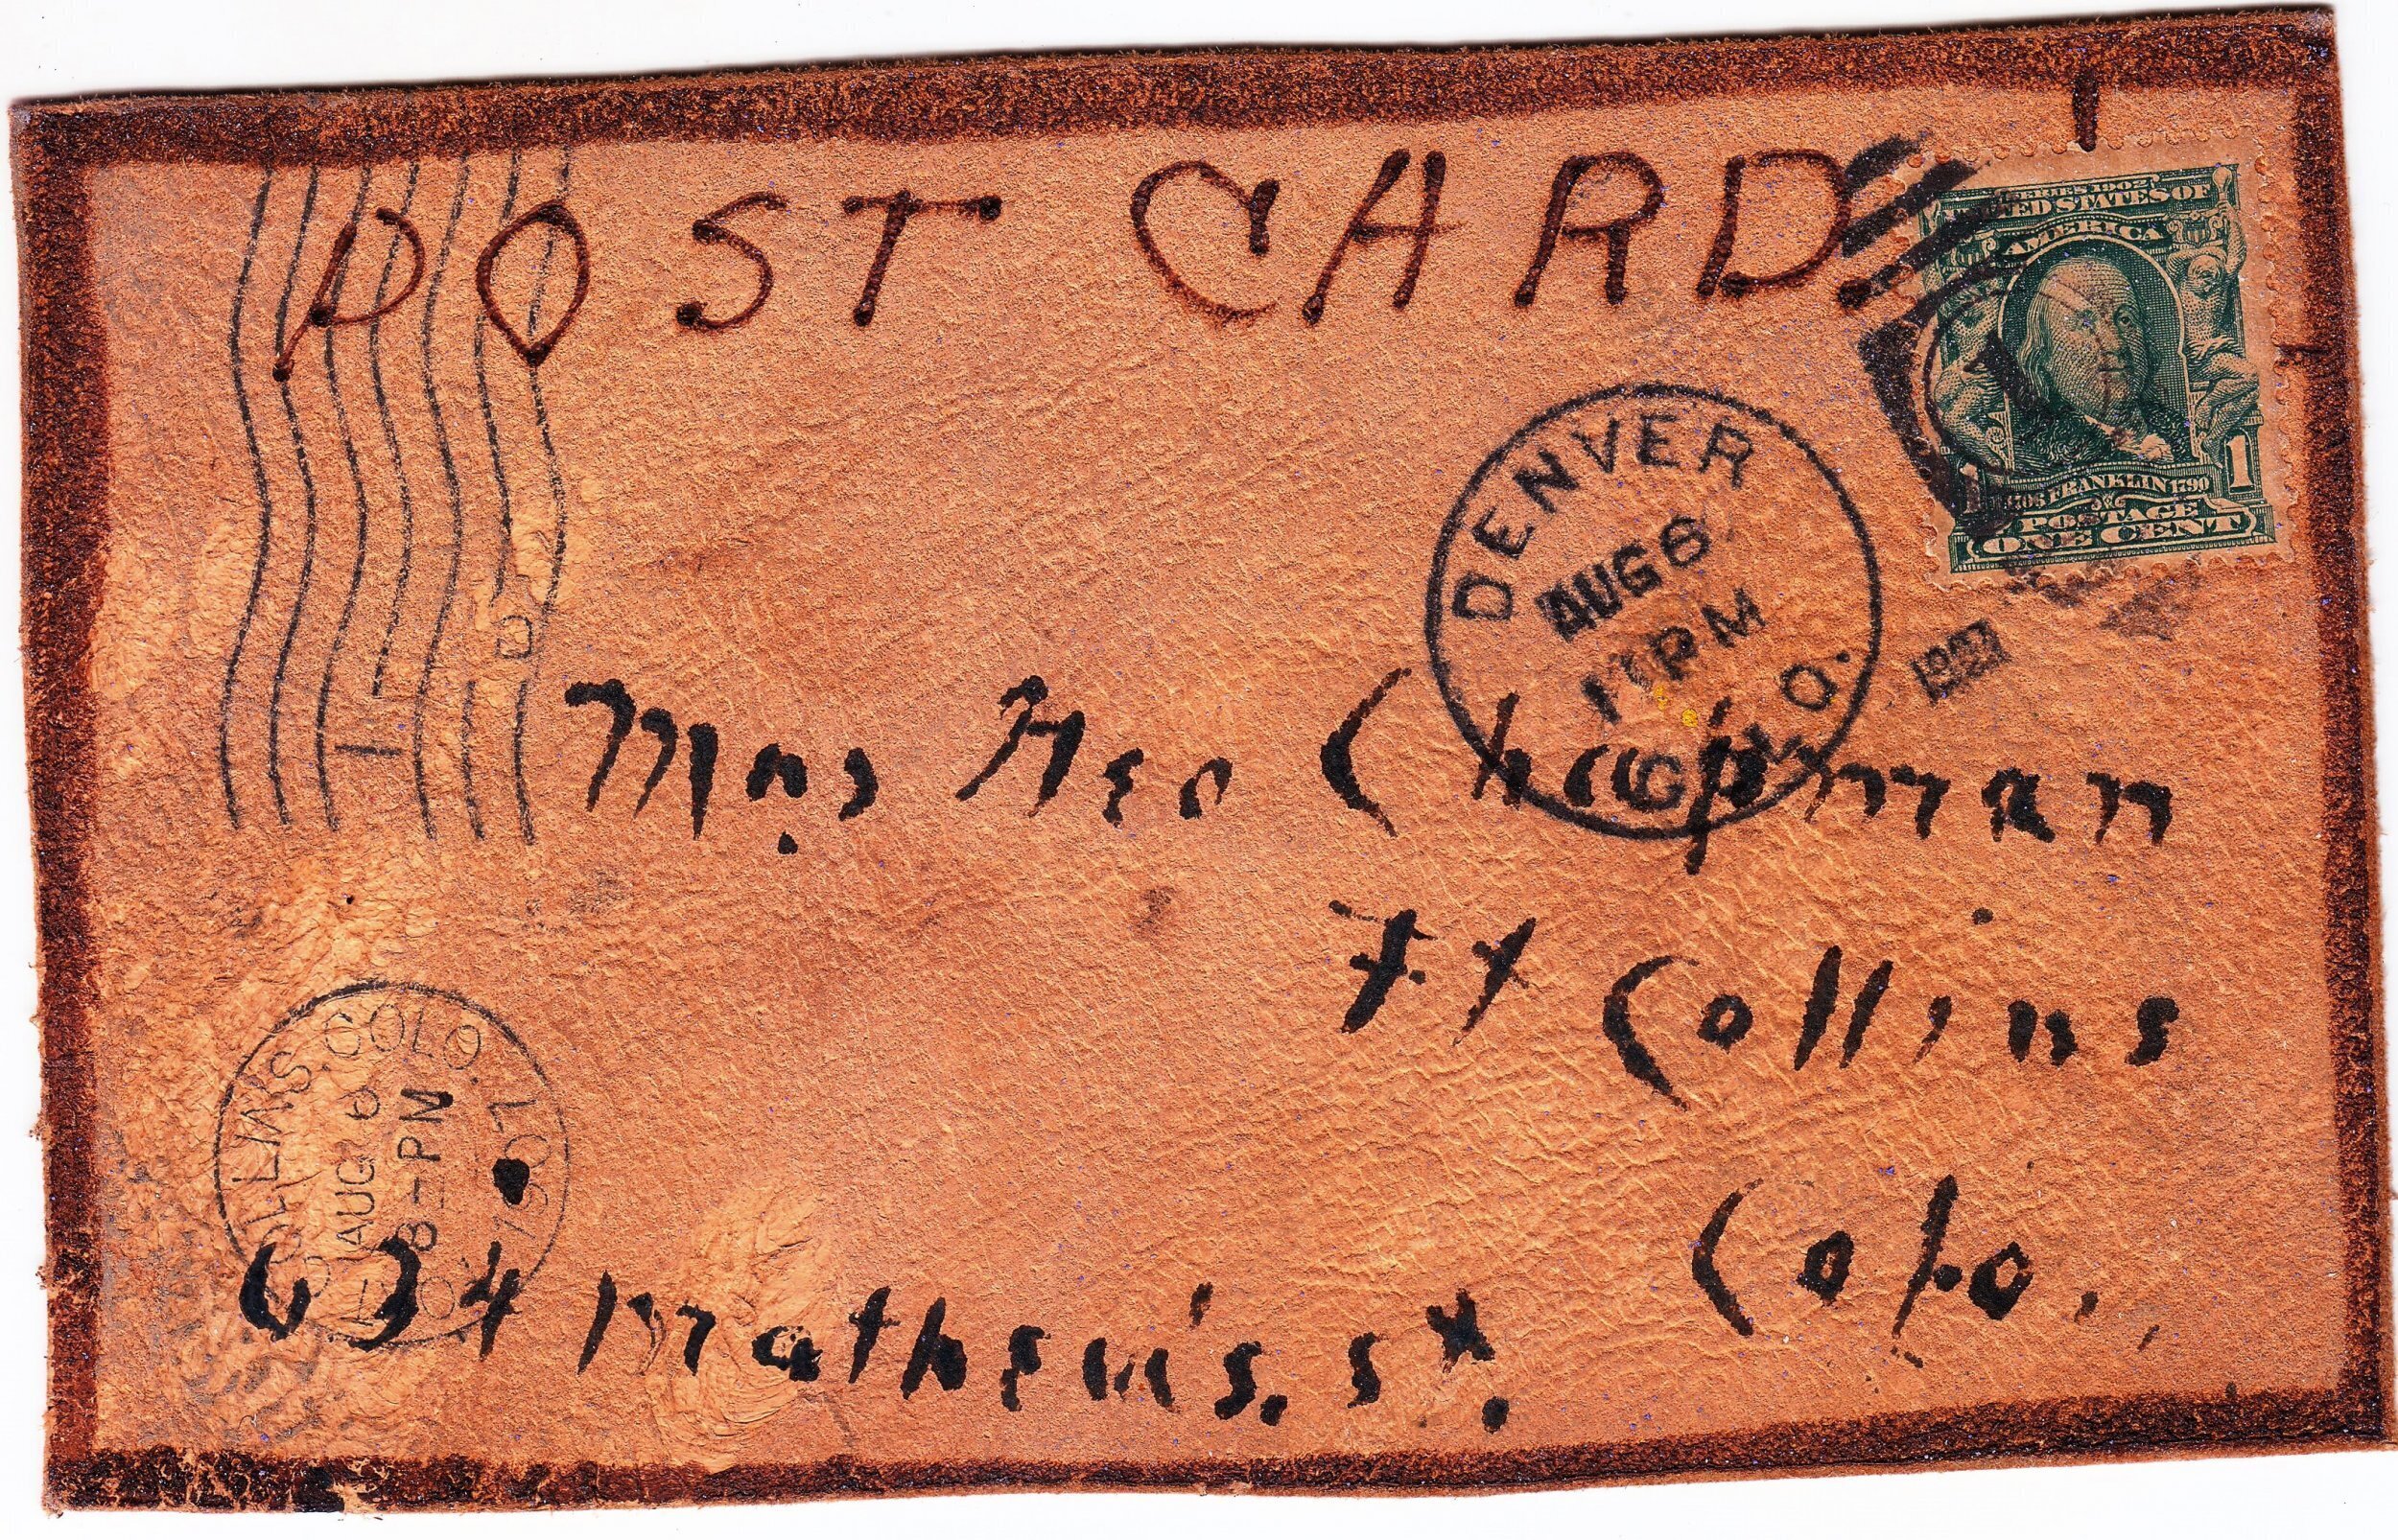 POST CARD
SERIES 1902
UNITED STATES OF
AMERICA
1706 FRANKLIN 1790
1 1
POSTAGE
ONE CENT
DENVER
AUG 6
PM
COLO.
1907
Mrs Geo Chapman
Ft Collins
Colo.
634 Mathews. St.
COLLINS. COLO.
AUG 6
8-PM
1907